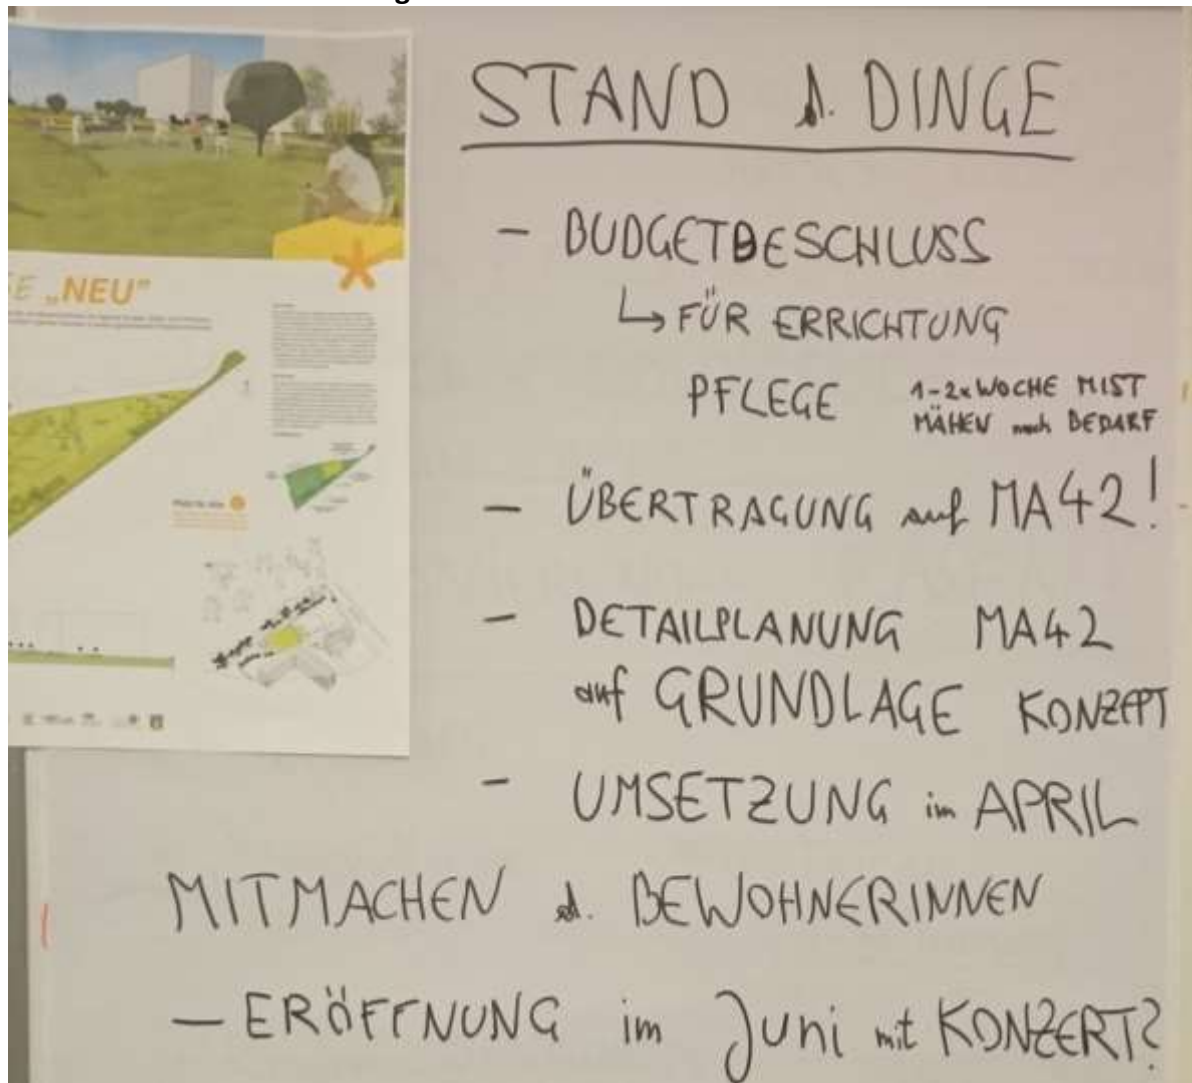 STAND d. DINGE
- BUDGETBESCHLUSS
↳ FÜR ERRICHTUNG
PFLEGE 1-2x WOCHE MIST
MÄHEN nach BEDARF
- ÜBERTRAGUNG auf MA42!
- DETAILPLANUNG MA42
auf GRUNDLAGE KONZEPT
- UMSETZUNG im APRIL
MITMACHEN d. BEWOHNERINNEN
- ERÖFFNUNG im Juni mit KONZERT?
E „NEU"